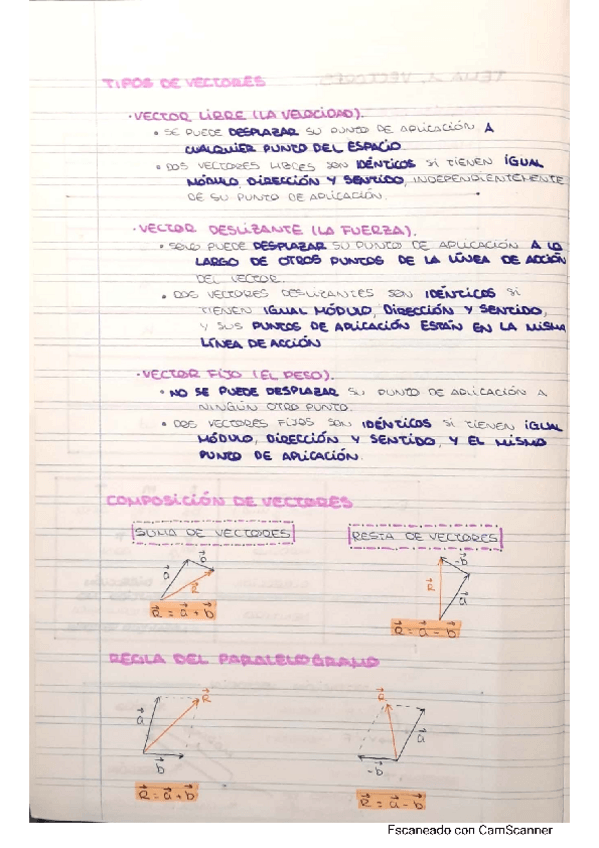 TIPOS DE VECTORES
· VECTOR LIBRE (LA VELOCIDAD).
• SE PUEDE DESPLAZAR SU PUNTO DE APLICACIÓN A
CUALQUIER PUNTO DEL ESPACIO.
• DOS VECTORES LIBRES SON IDÉNTICOS SI TIENEN IGUAL
MÓDULO, DIRECCIÓN Y SENTIDO, INDEPENDIENTEMENTE
DE SU PUNTO DE APLICACIÓN.
· VECTOR DESLIZANTE (LA FUERZA).
• SOLO PUEDE DESPLAZAR SU PUNTO DE APLICACIÓN A LO
LARGO DE OTROS PUNTOS DE LA LÍNEA DE ACCIÓN
DEL VECTOR.
• DOS VECTORES DESLIZANTES SON IDÉNTICOS SI
TIENEN IGUAL MÓDULO, DIRECCIÓN Y SENTIDO,
Y SUS PUNTOS DE APLICACIÓN ESTÁN EN LA MISMA
LÍNEA DE ACCIÓN
· VECTOR FIJO (EL PESO).
• NO SE PUEDE DESPLAZAR SU PUNTO DE APLICACIÓN A
NINGÚN OTRO PUNTO.
• DOS VECTORES FIJOS SON IDÉNTICOS SI TIENEN IGUAL
MÓDULO, DIRECCIÓN Y SENTIDO, Y EL MISMO
PUNTO DE APLICACIÓN.
COMPOSICIÓN DE VECTORES
SUMA DE VECTORES
RESTA DE VECTORES
a⃗
b⃗
R⃗
R⃗ = a⃗ + b⃗
-b⃗
R⃗
a⃗
R⃗ = a⃗ - b⃗
REGLA DEL PARALELOGRAMO
a⃗
R⃗
b⃗
R⃗ = a⃗ + b⃗
R⃗
a⃗
-b⃗
R⃗ = a⃗ - b⃗
Escaneado con CamScanner